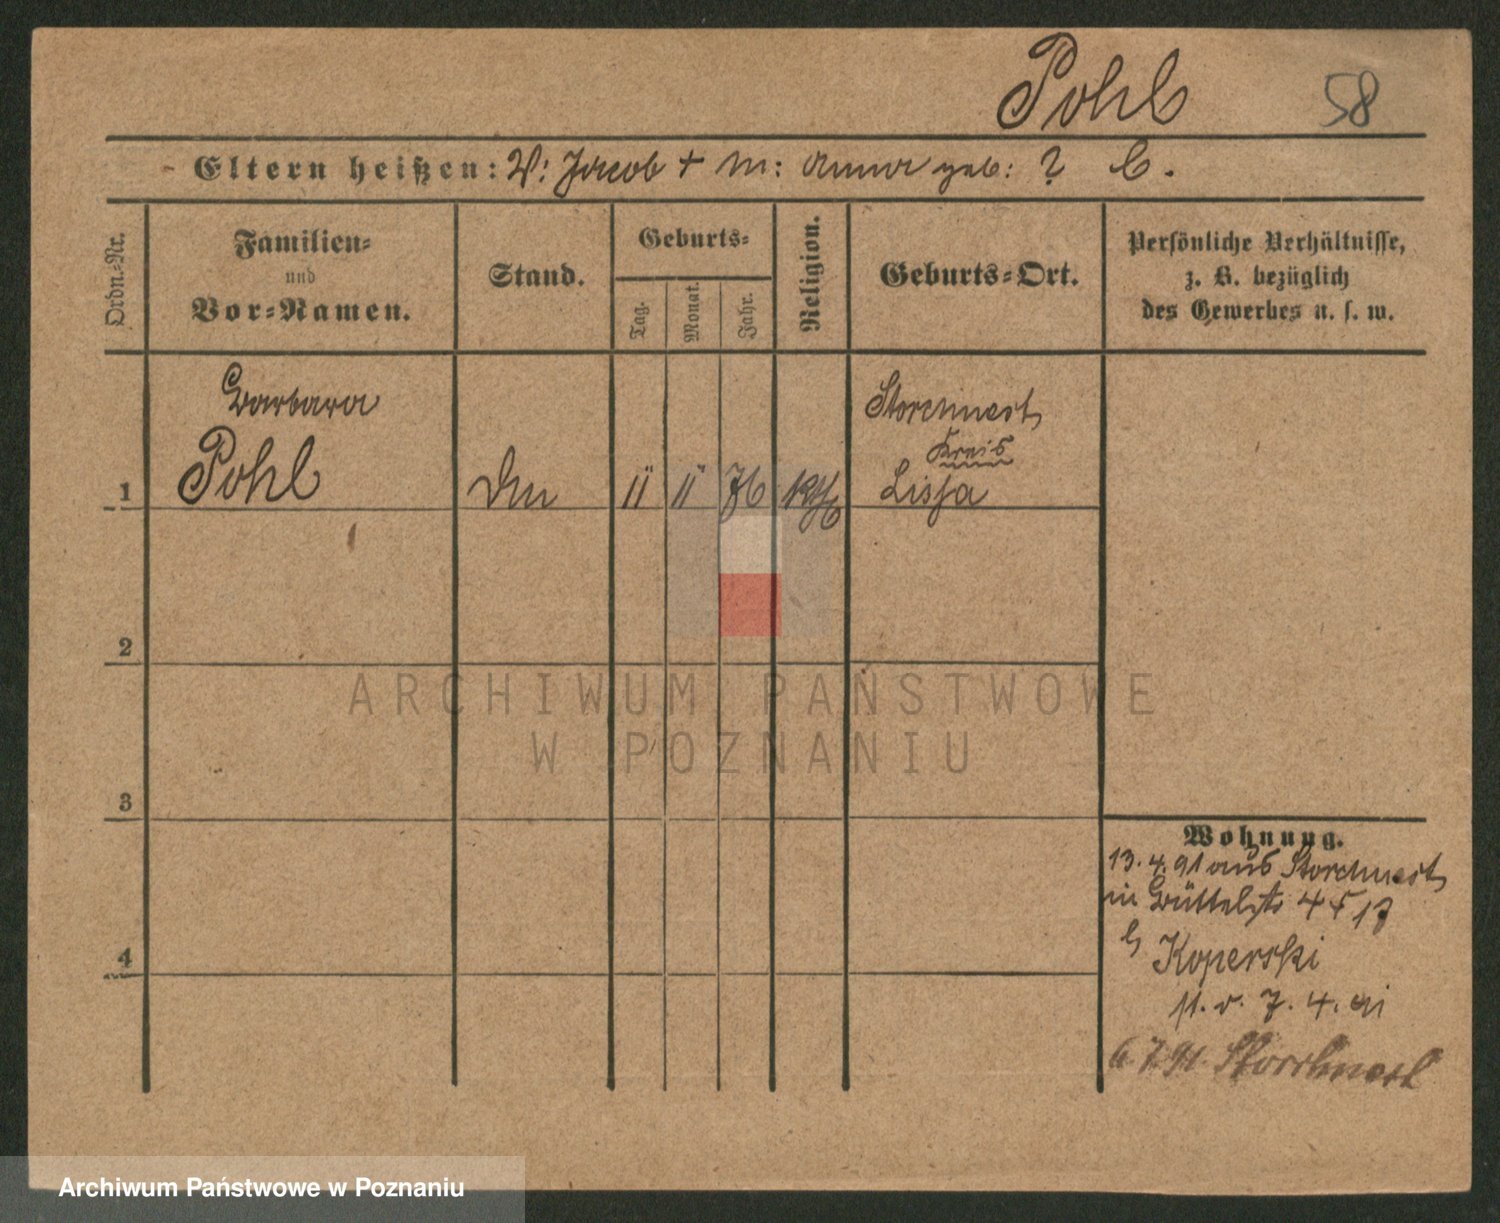 Pohl 58
Eltern heißen: V: Jacob + M: Anna geb: ? C.
Ordn.-Nr.
Familien-
und
Vor-Namen.
Stand.
Geburts-
Tag.
Monat.
Jahr.
Religion.
Geburts-Ort.
Persönliche Verhältnisse,
z. B. bezüglich
des Gewerbes u. s. w.
Barbara
Pohl
1
11 11 76
Storchnest
Kreis
Lissa
2
ARCHIWUM PAŃSTWOWE
W POZNANIU
3
Wohnung.
13. 4. 91 aus Storchnest
in Büttelstr 4 17
b Koperski
v. 7. 4. 91
4
6. 7. 91. Storchnest
Archiwum Państwowe w Poznaniu